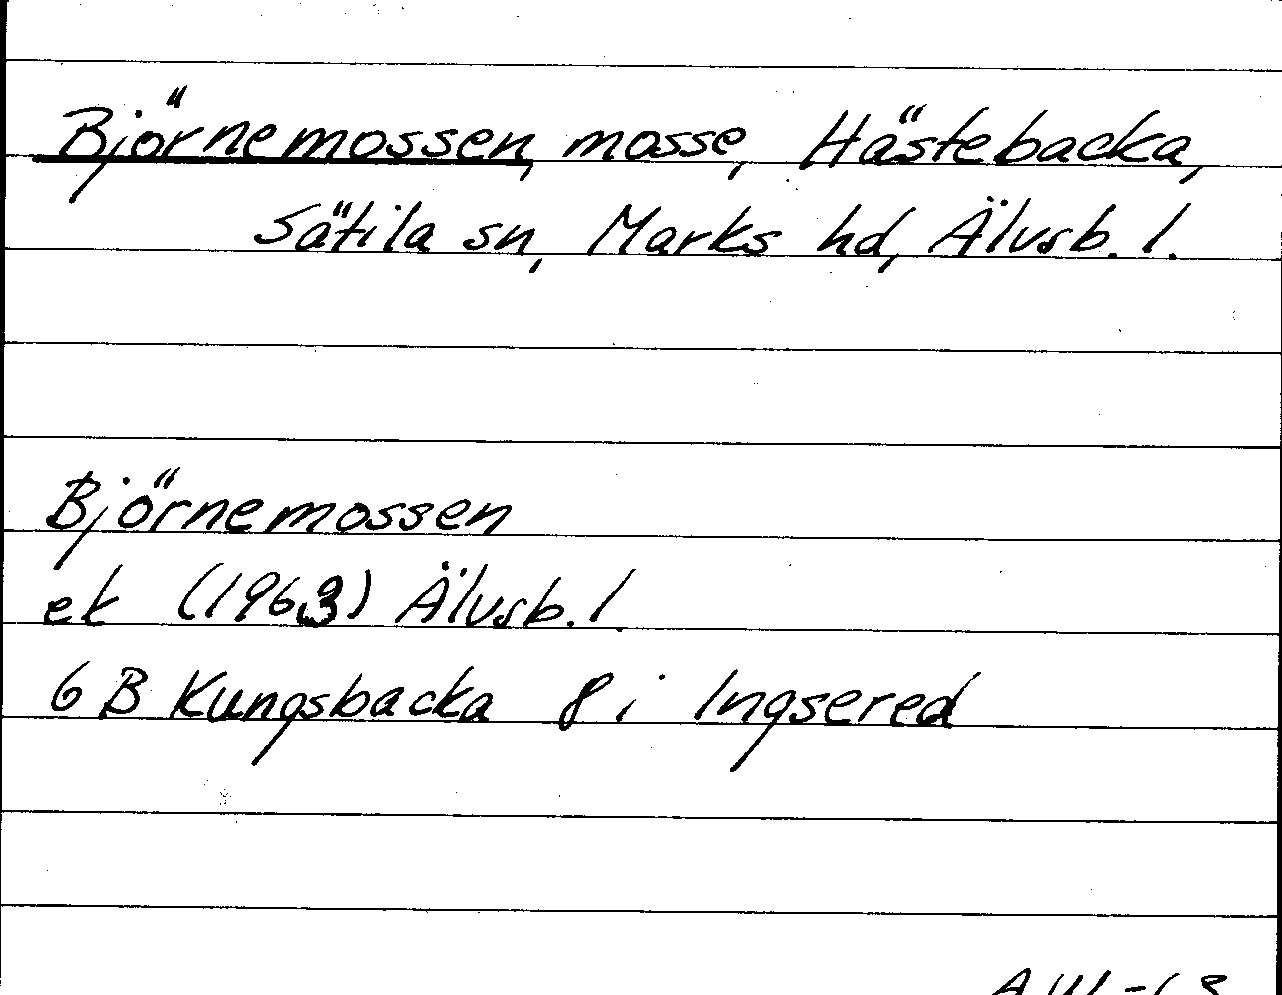 Björnemossen, mosse, Hästebacka,
Sätila sn, Marks hd, Älvsb. l.
Björnemossen
ek (1963) Älvsb. l.
6 B Kungsbacka 8 i Ingsered